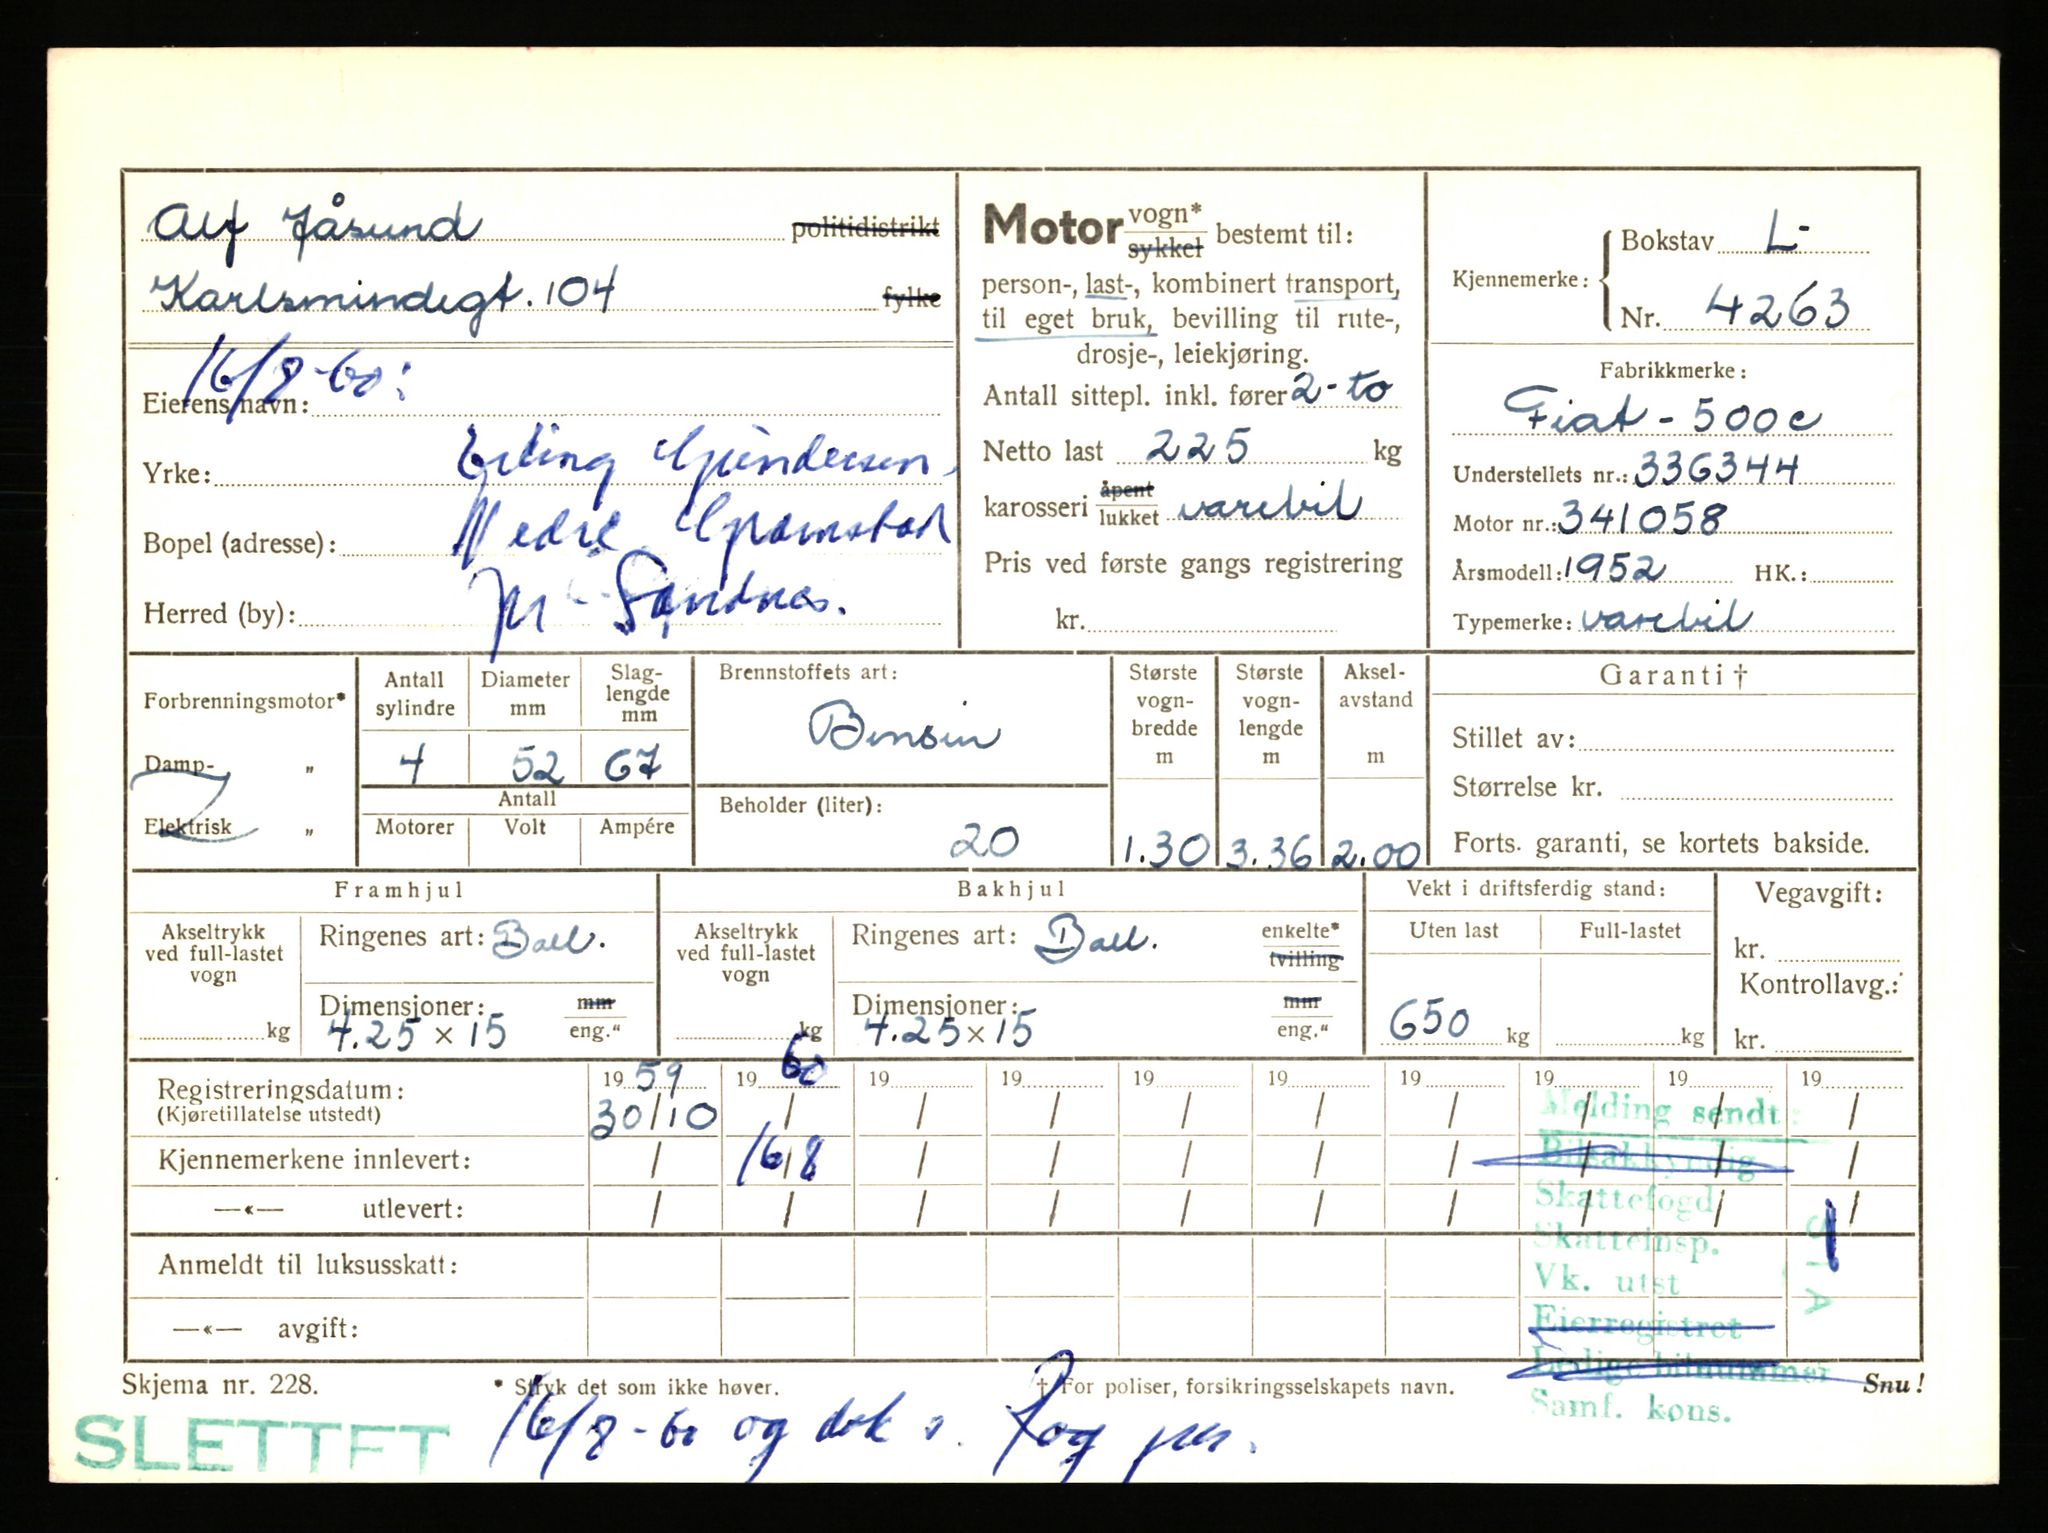 Alf Jåsund politidistrikt
Karlsmindegt. 104 fylke
16/8-60:
Eierens navn:
Erling Gundersen,
Yrke:
Nedre Gramstad
Bopel (adresse):
pr Sandnes.
Herred (by):
Motor vogn* sykkel bestemt til:
person-, last-, kombinert transport,
til eget bruk, bevilling til rute-,
drosje-, leiekjøring.
Antall sittepl. inkl. fører 2-to
Netto last 225 kg
karosseri åpent lukket varebil
Pris ved første gangs registrering
kr.
Kjennemerke: Bokstav L-
Nr. 4263
Fabrikkmerke:
Fiat - 500c
Understellets nr.: 336344
Motor nr.: 341058
Årsmodell: 1952 HK.:
Typemerke: varebil
Forbrenningsmotor*
Damp- „
Elektrisk „
Antall sylindre 4
Diameter mm 52
Slaglengde mm 67
Antall
Motorer Volt Ampére
Brennstoffets art:
Bensin
Beholder (liter):
20
Største vogn-bredde m 1.30
Største vogn-lengde m 3.36
Aksel-avstand m 2.00
Garanti †
Stillet av:
Størrelse kr.
Forts. garanti, se kortets bakside.
Framhjul
Akseltrykk ved full-lastet vogn
kg
Ringenes art: Ball.
Dimensjoner: mm
4.25 x 15 eng."
Bakhjul
Akseltrykk ved full-lastet vogn
kg
Ringenes art: Ball. enkelte* tvilling
Dimensjoner: mm
4.25 x 15 eng."
Vekt i driftsferdig stand:
Uten last Full-lastet
650 kg kg
Vegavgift:
kr.
Kontrollavg.:
kr.
Registreringsdatum: 19 59 19 60 19 19 19 19 19 19 19 19
(Kjøretillatelse utstedt) 30/10 / / / / / / / / /
Kjennemerkene innlevert: / 16/8 / / / / / / / /
—«— utlevert: / / / / / / / / / /
Anmeldt til luksusskatt:
—«— avgift:
Melding sendt:
Bilsakkyndig
Skattefogd
Skatteinsp.
Vk. utst
Eierregistret
Ledige bilnummer
Samf. kons.
Skjema nr. 228. * Stryk det som ikke høver. † For poliser, forsikringsselskapets navn. Snu!
SLETTET
16/8-60 og dok